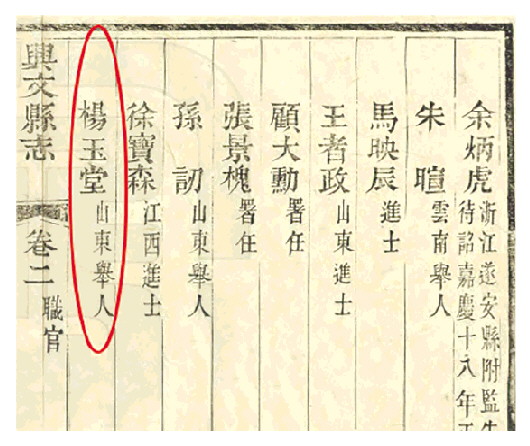 余炳虎 浙江遂安縣附監生
待詔嘉慶十八年
朱暄 雲南舉人
馬映辰 進士
王者政 山東進士
顧大勳 署任
張景槐 署任
孫訒 山東舉人
徐寶森 江西進士
楊玉堂 山東舉人
興文縣志 卷二 職官